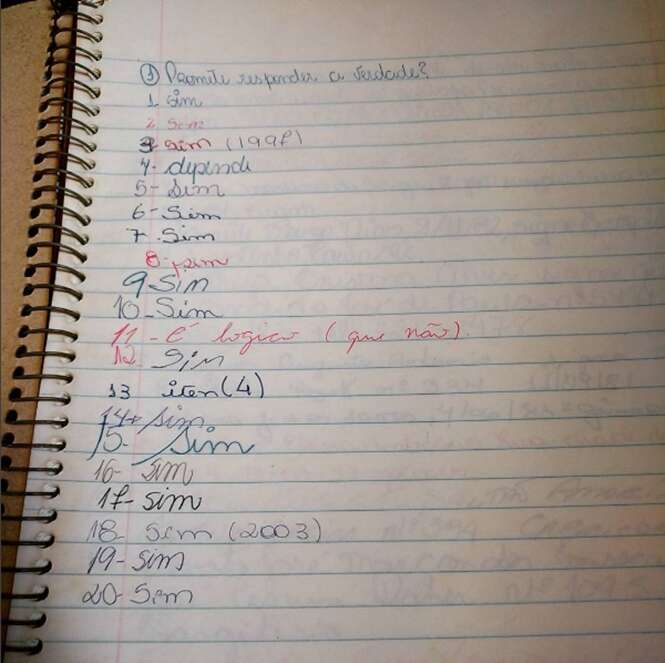 ① Promete responder a verdade?
1. sim
2. sim
3- sim (1997)
4- depende
5- Sim
6- Sim
7- Sim
8- sim
9- Sim
10- Sim
11- é logico (que não).
12- Sim
13 iten (4)
14+ sim
15- Sim
16- sim
17- sim
18- sim (2003)
19- sim
20- Sim